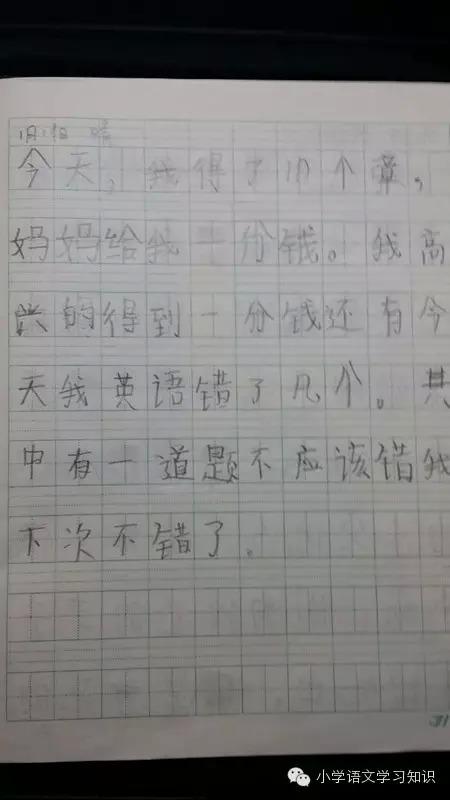 晴
今天,我得了10个章,
妈妈给我一分钱。我高
兴的得到一分钱还有今
天我英语错了几个。其
中有一道题不应该错我
下次不错了。
31
小学语文学习知识